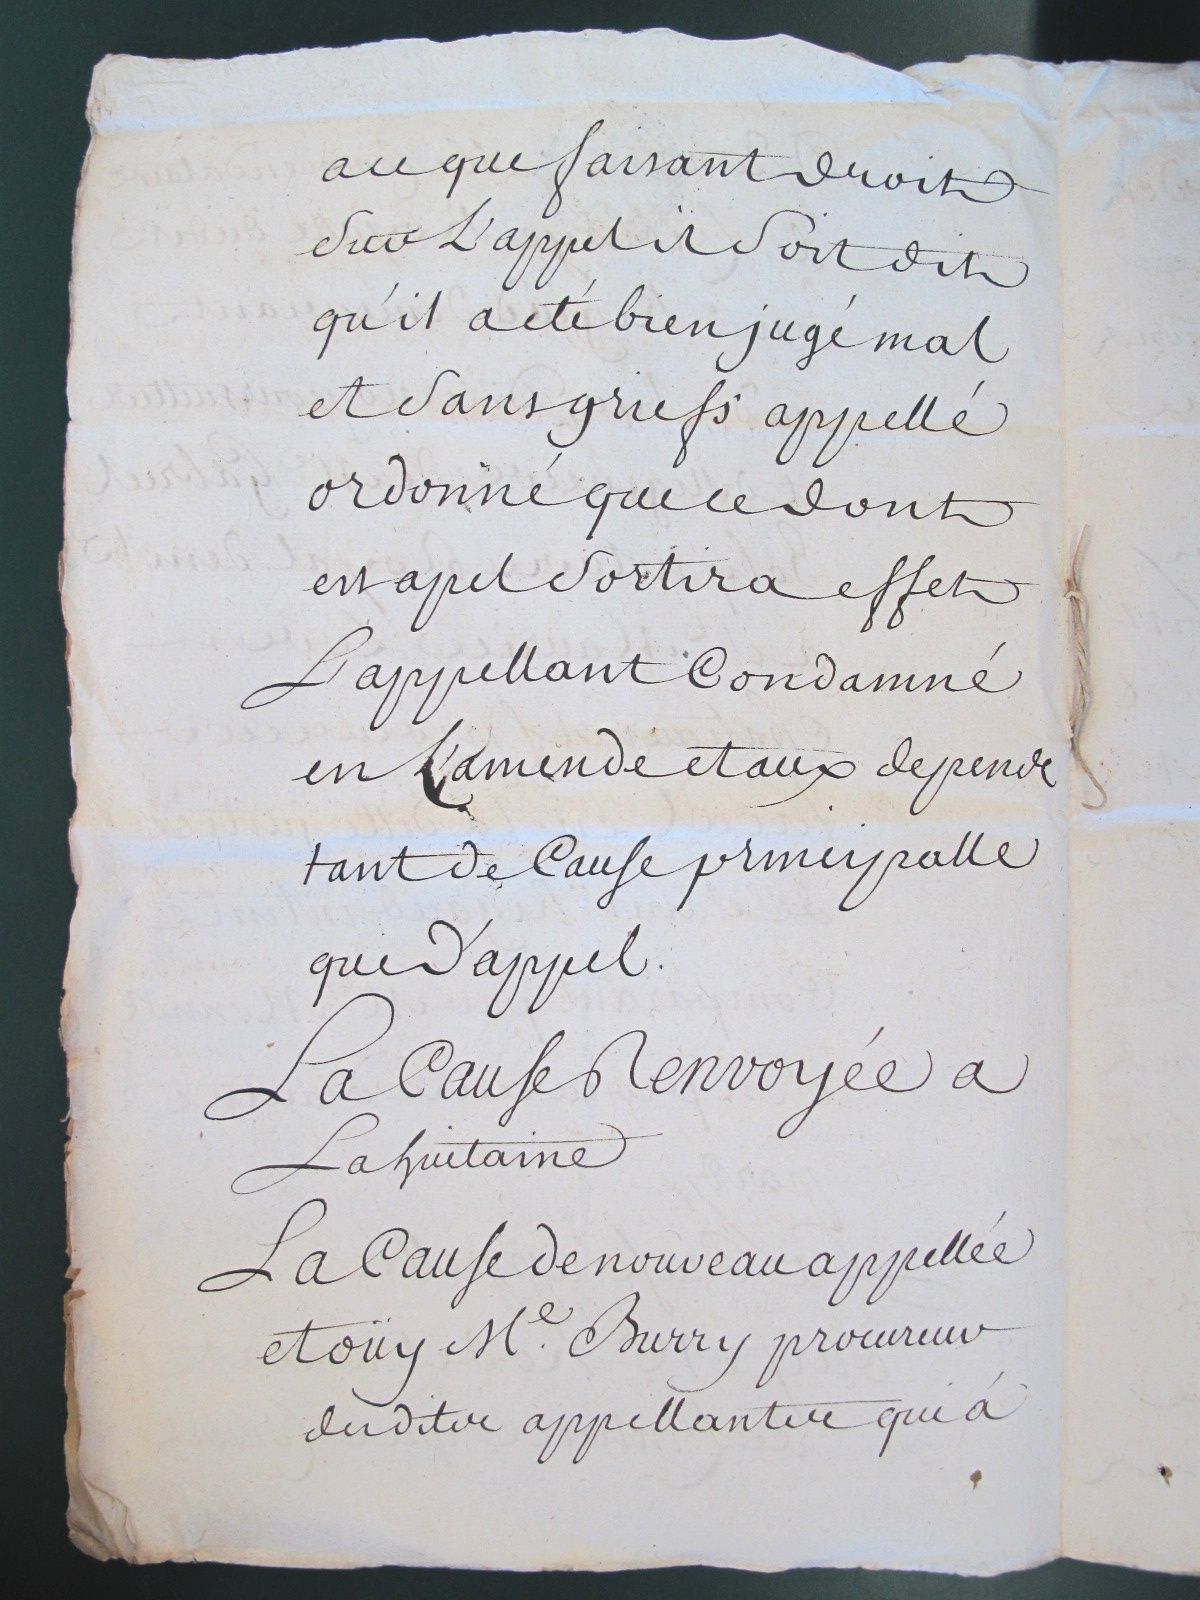 a ce que faisant droit
sur L'appel il soit dit
qu'il a eté bien jugé mal
et sans griefs appellé
ordonné que ce dont
est apel sortira effet
L'appellant Condamné
en L'amende et aux depends
tant de Cause principalle
que d'appel.
La Cause Renvoyée a
La huitaine
La Cause de nouveau appellée
et oüy Me. Burry procureur
desdites appellantes qui á